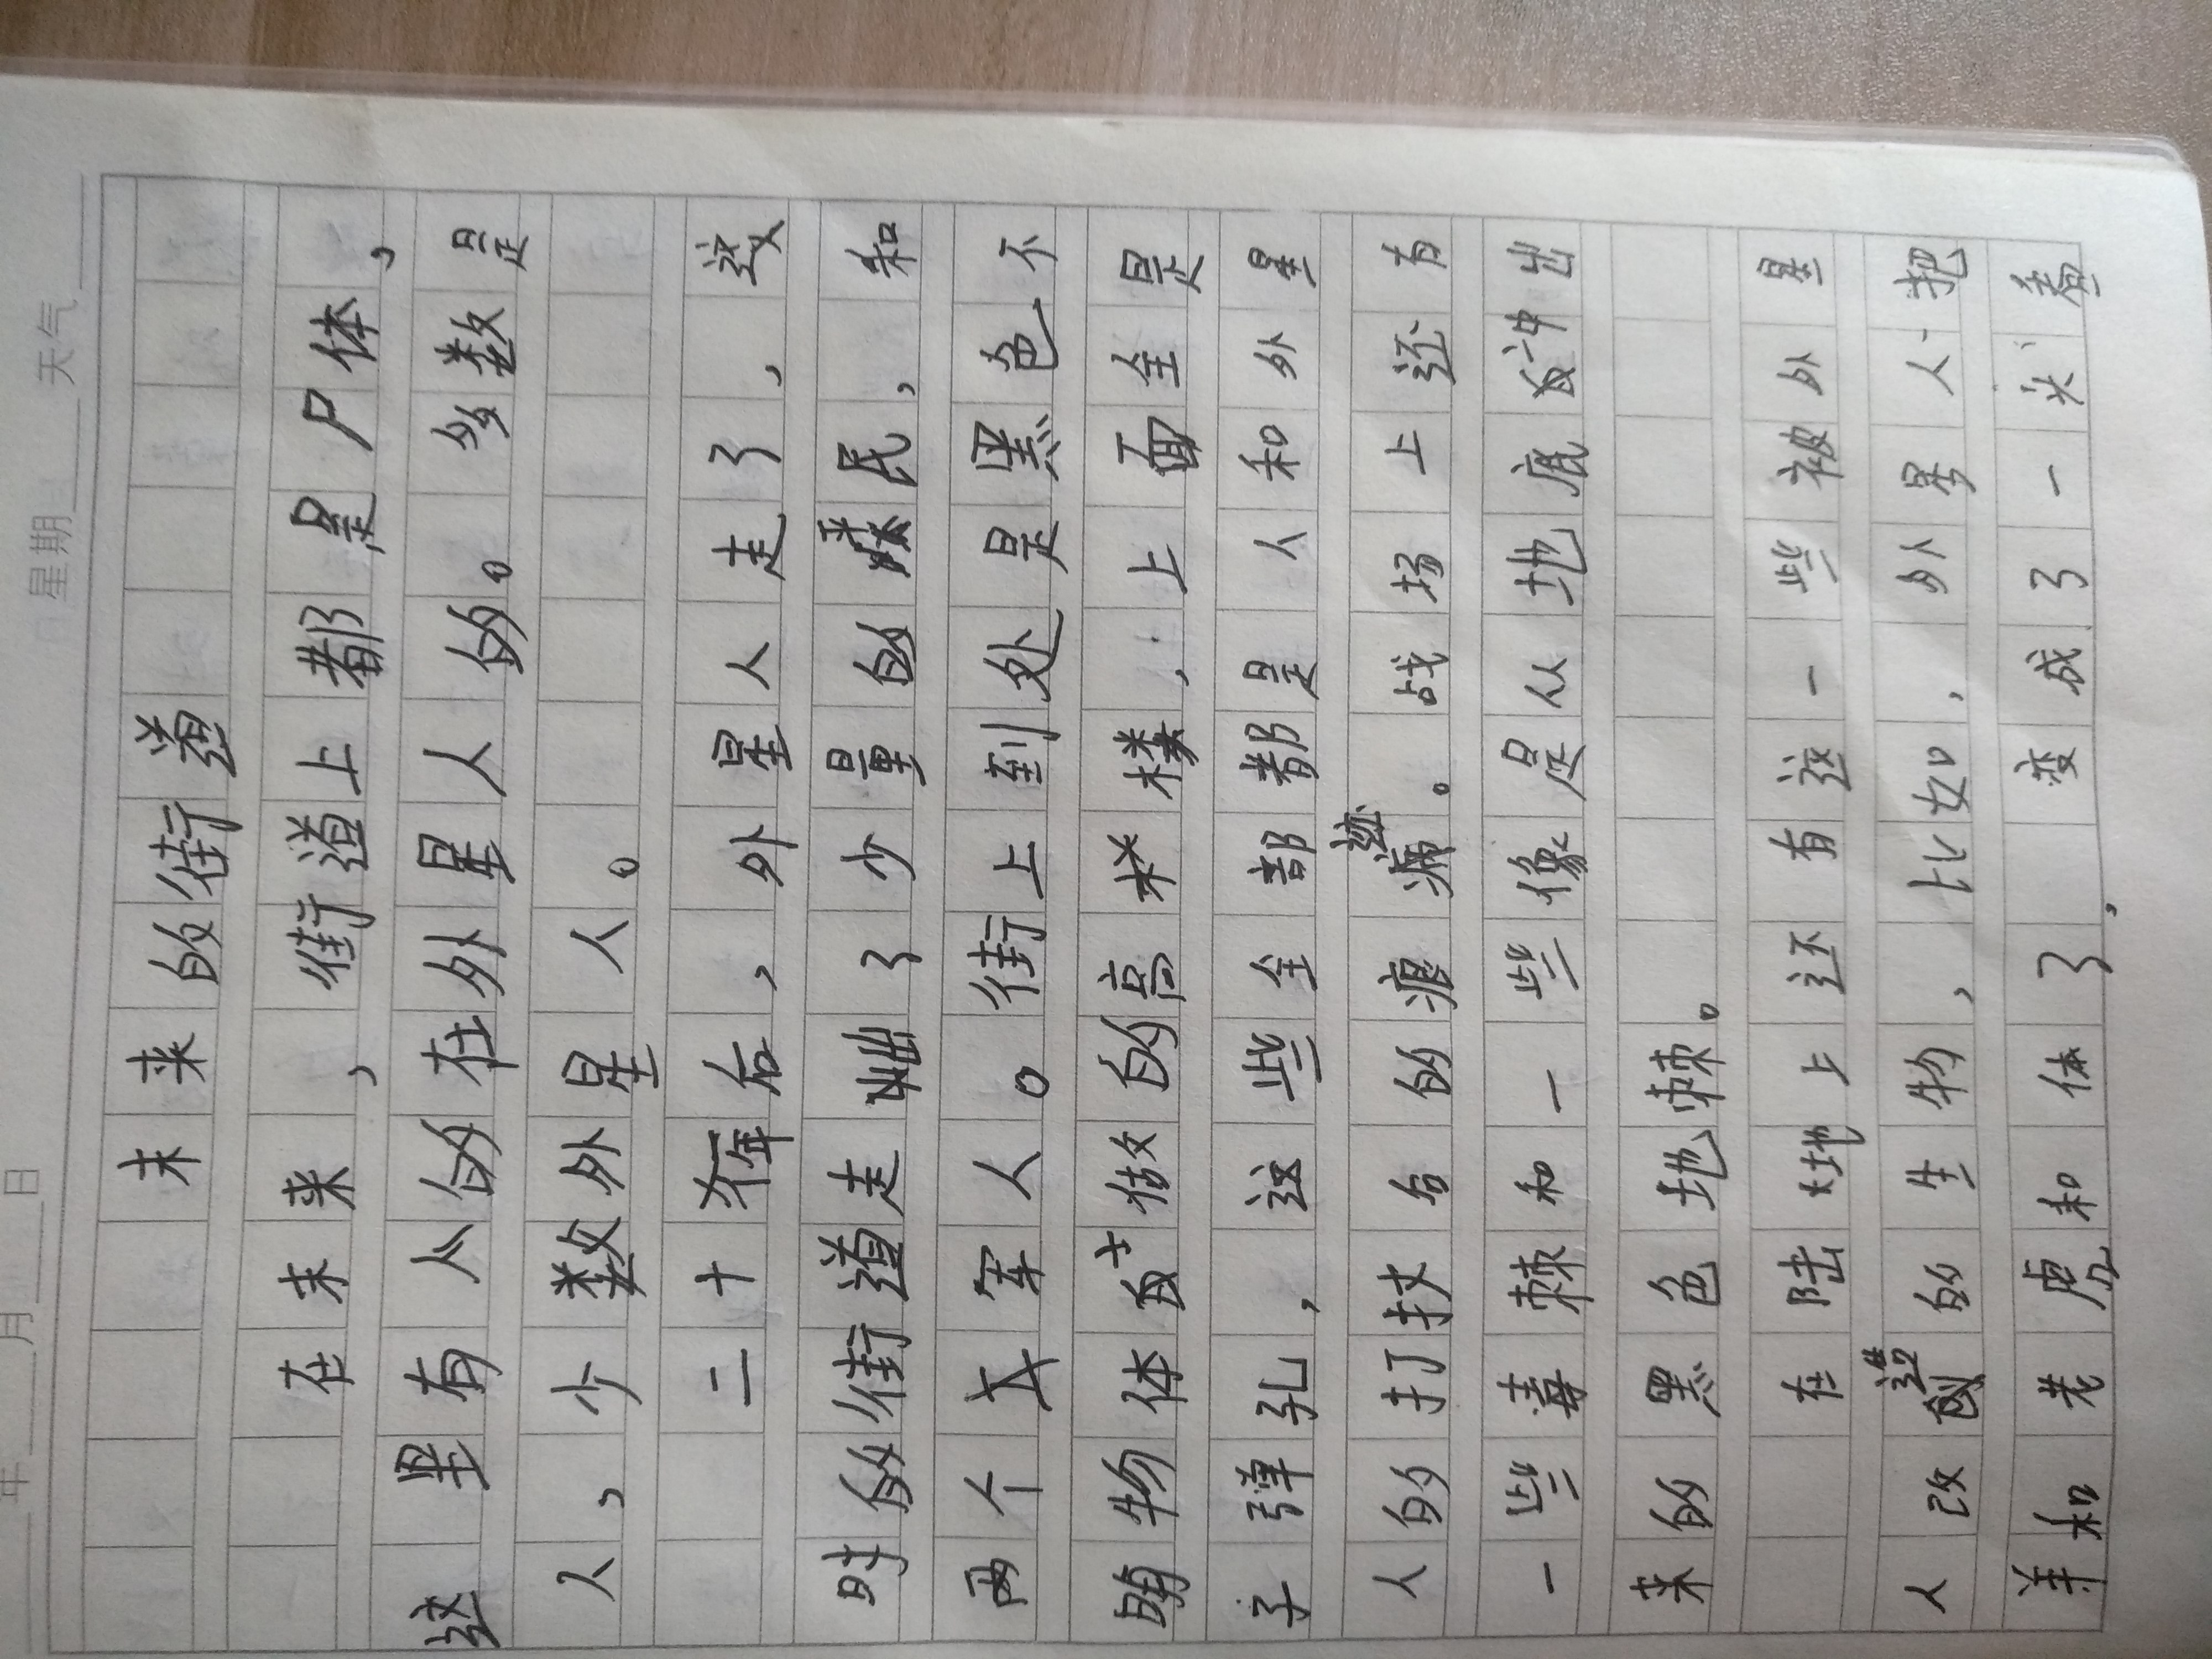 年 月 日 星期 天气
未来的街道
在未来，街道上都是尸体，
这里有人的在外星人的。多数是
人，少数外星人。
二十年后，外星人走了，这
时的街道走出了少量的平民，和
两个大军人。街上到处是黑色不
明物体成做的高楼，上面全是
子弹孔，这些全部都是人和外星
人的打扙台的痕迹。战场上还有
一些毒棘和一些像是从地底冲出
来的黑色地棘。
在陆地上还有这一些被外星
人改造的生物，比如，外星人把
羊和老虎和体了变成了一头卷